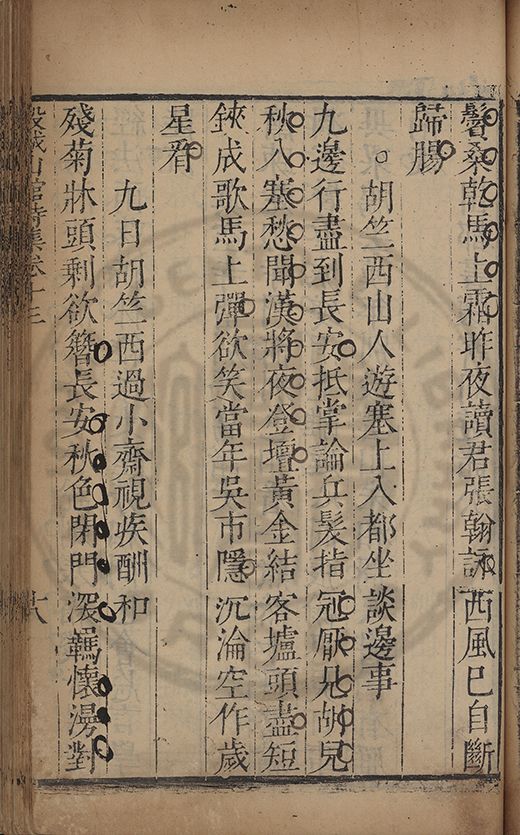 鬢桑乾馬上霜昨夜讀君張翰詠西風已自斷
歸腸
胡竺西山人遊塞上入都坐談邊事
九邊行盡到長安抵掌論兵髮指冠厭見胡兒
秋入塞愁聞漢將夜登壇黃金結客壚頭盡短
鋏成歌馬上彈欲笑當年吳市隱沉淪空作歲
星看
九日胡竺西過小齋視疾酬和
殘菊牀頭剩欲簪長安秋色閉門深羈懷漫對
館詩集卷十三
十八